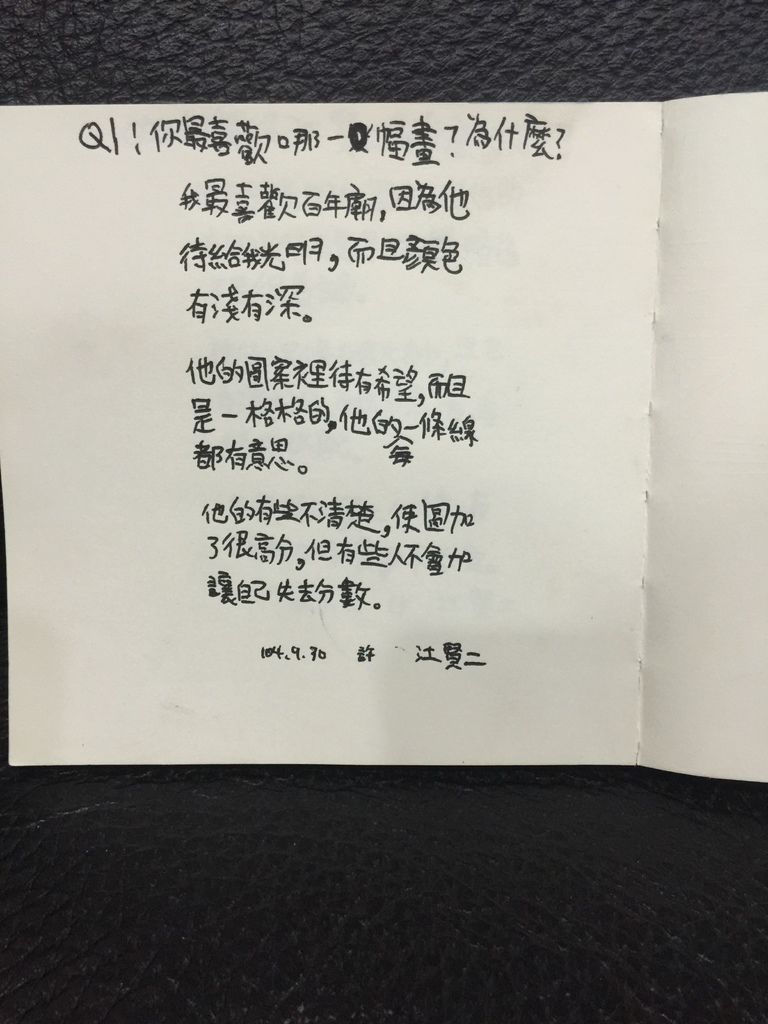 Q1:你最喜歡哪一幅畫?為什麼?
我最喜歡百年廟,因為他
待給我光明,而且顏色
有淺有深。
他的圖案裡待有希望,而且
是一格格的,他的每一條線
都有意思。
他的有些不清楚,使圖加
了很高分,但有些人不會加
讓自己失去分數。
104.9.30 許 江賢二